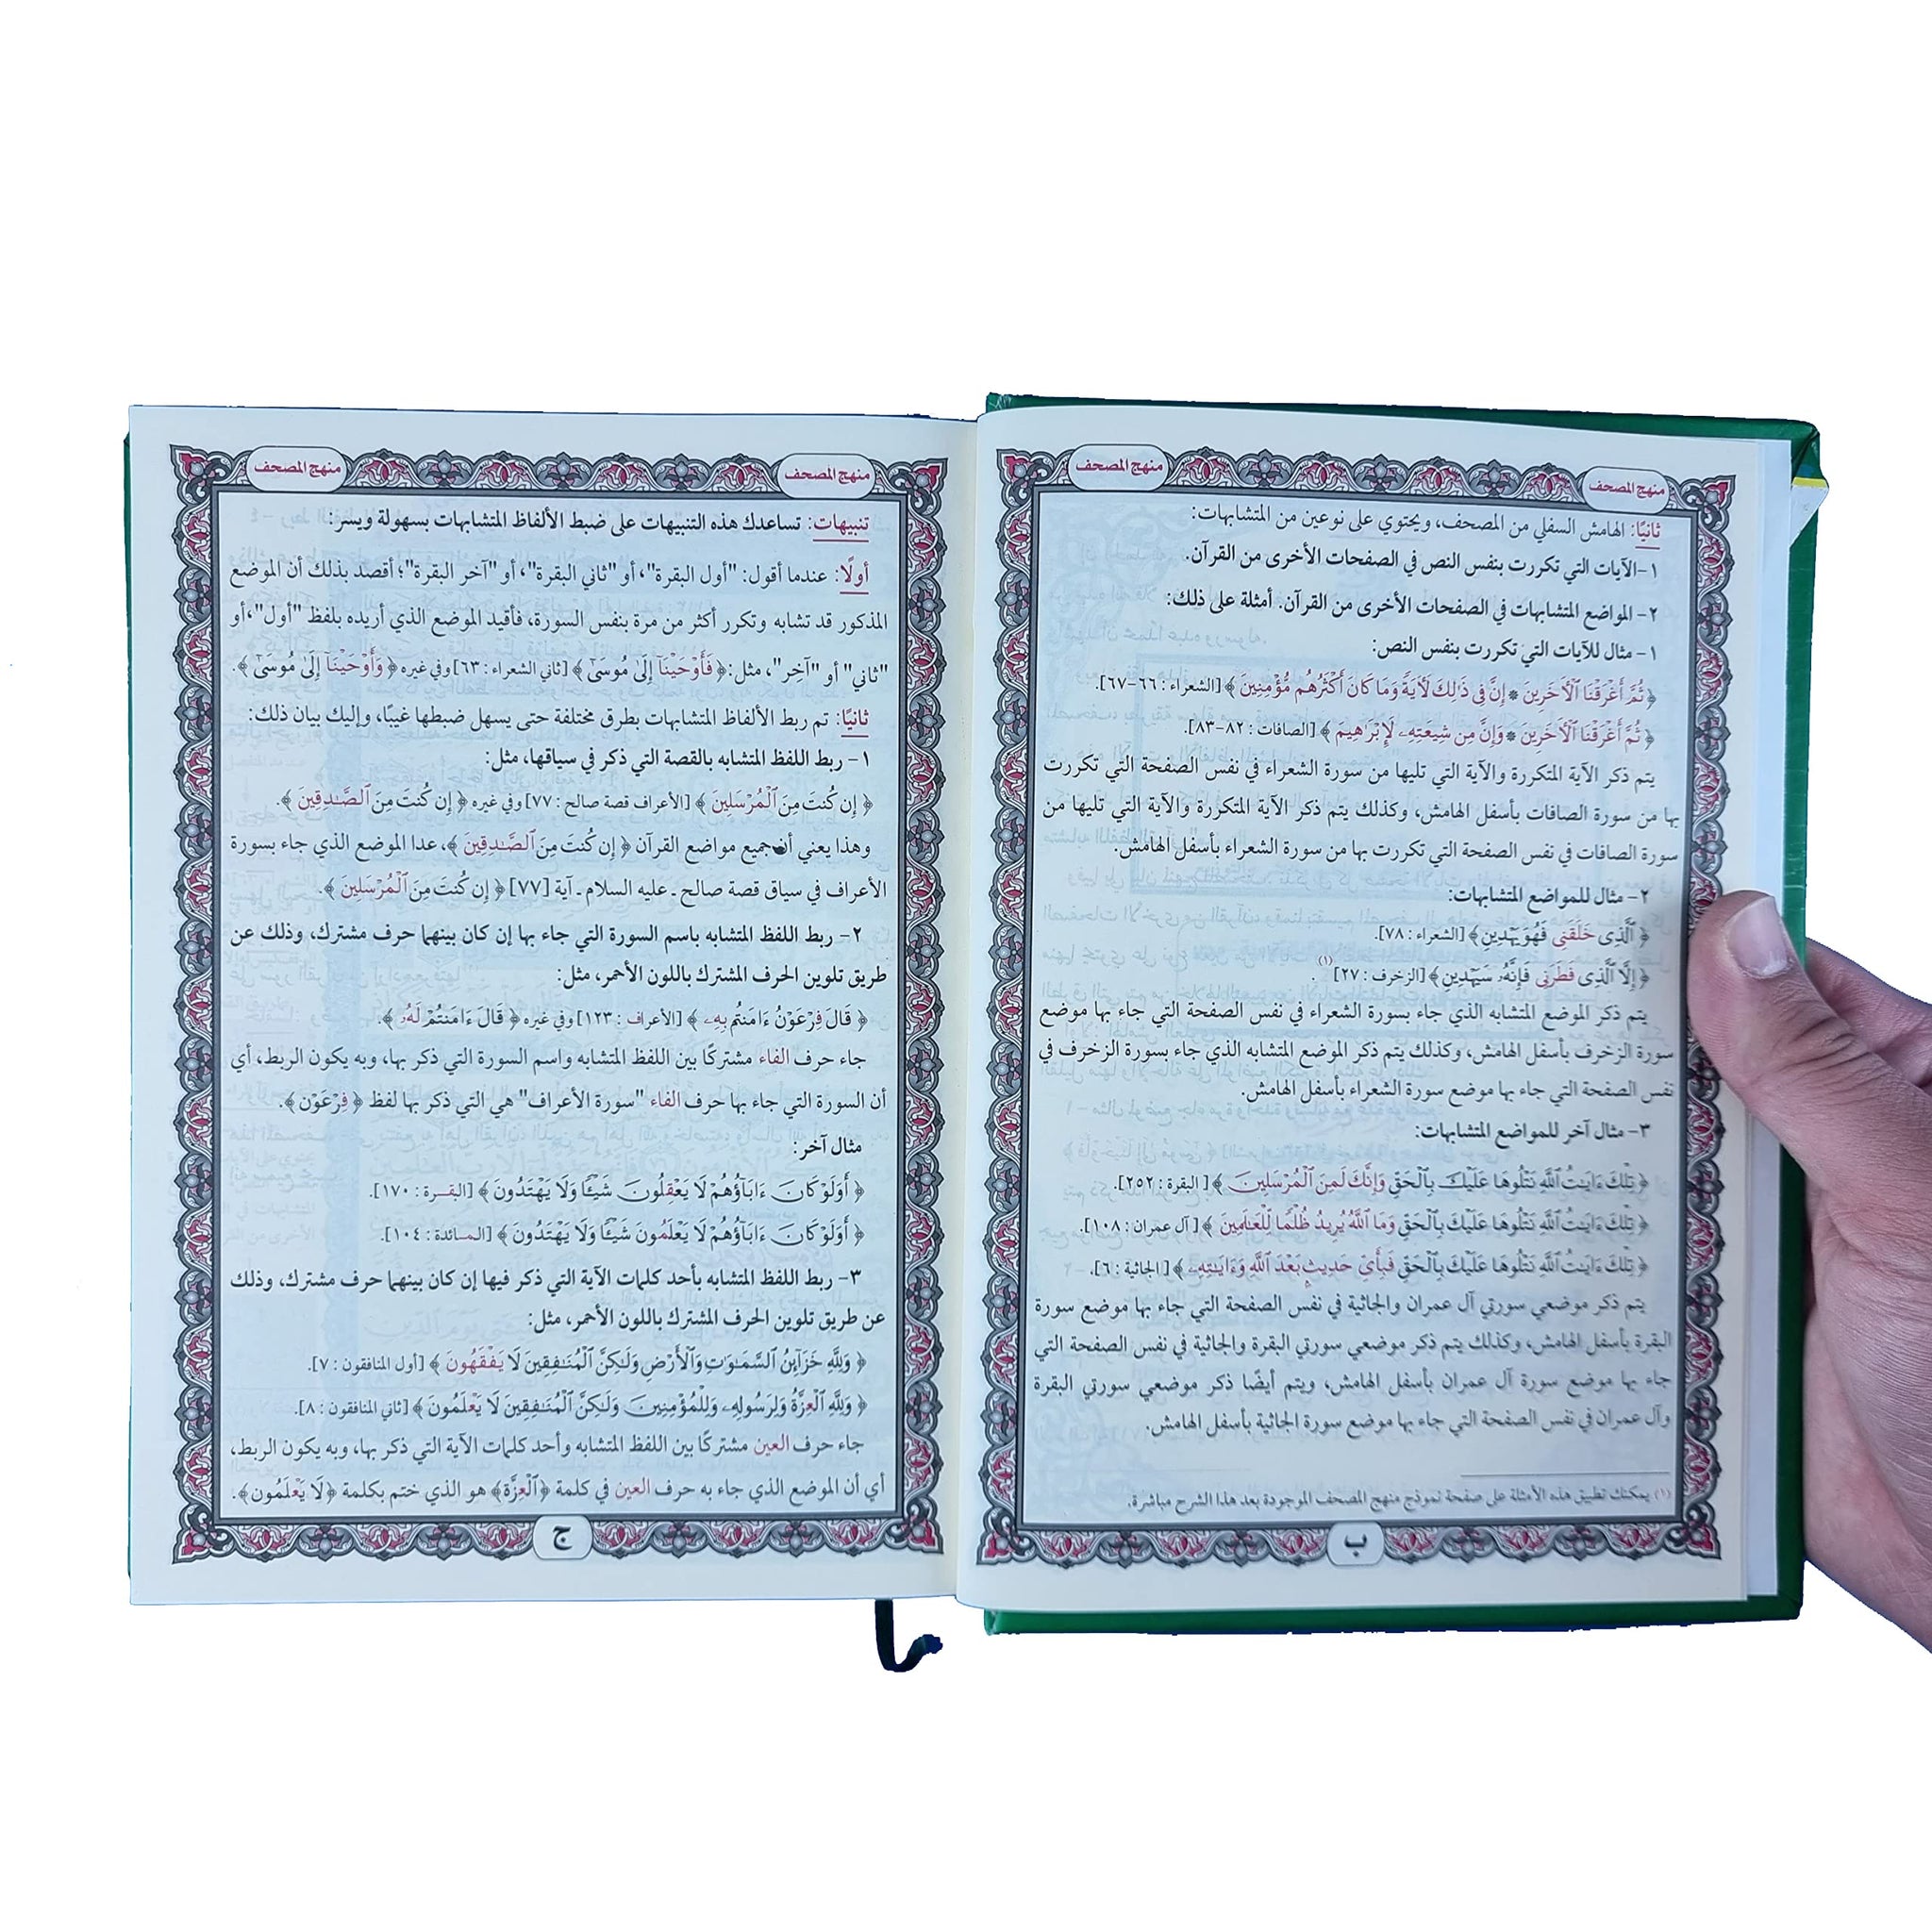 منهج المصحف
منهج المصحف
ثانيًا: الهامش السفلي من المصحف، ويحتوي على نوعين من المتشابهات:
١-الآيات التي تكررت بنفس النص في الصفحات الأخرى من القرآن.
٢- المواضع المتشابهات في الصفحات الأخرى من القرآن. أمثلة على ذلك:
١- مثال للآيات التي تكررت بنفس النص:
﴿ ثُمَّ أَغْرَقْنَا ٱلْأٓخَرِينَ * إِنَّ فِى ذَٰلِكَ لَأٓيَةً وَمَا كَانَ أَكْثَرُهُم مُّؤْمِنِينَ ﴾ [الشعراء : ٦٦-٦٧].
﴿ ثُمَّ أَغْرَقْنَا ٱلْأٓخَرِينَ * وَإِنَّ مِن شِيعَتِهِۦ لَإِبْرَٰهِيمَ ﴾ [الصافات : ٨٢-٨٣].
يتم ذكر الآية المتكررة والآية التي تليها من سورة الشعراء في نفس الصفحة التي تكررت
بها من سورة الصافات بأسفل الهامش، وكذلك يتم ذكر الآية المتكررة والآية التي تليها من
سورة الصافات في نفس الصفحة التي تكررت بها من سورة الشعراء بأسفل الهامش.
٢- مثال للمواضع المتشابهات:
﴿ ٱلَّذِى خَلَقَنِى فَهُوَ يَهْدِينِ﴾ [الشعراء : ٧٨].
﴿ إِلَّا ٱلَّذِى فَطَرَنِى فَإِنَّهُۥ سَيَهْدِينِ﴾ [الزخرف : ٢٧](١).
يتم ذكر الموضع المتشابه الذي جاء بسورة الشعراء في نفس الصفحة التي جاء بها موضع
سورة الزخرف بأسفل الهامش، وكذلك يتم ذكر الموضع المتشابه الذي جاء بسورة الزخرف في
نفس الصفحة التي جاء بها موضع سورة الشعراء بأسفل الهامش.
٣- مثال آخر للمواضع المتشابهات:
﴿ تِلْكَ ءَايَٰتُ ٱللَّهِ نَتْلُوهَا عَلَيْكَ بِٱلْحَقِّ وَإِنَّكَ لَمِنَ ٱلْمُرْسَلِينَ ﴾ [ البقرة : ٢٥٢].
﴿ تِلْكَ ءَايَٰتُ ٱللَّهِ نَتْلُوهَا عَلَيْكَ بِٱلْحَقِّ وَمَا ٱللَّهُ يُرِيدُ ظُلْمًا لِّلْعَٰلَمِينَ ﴾ [ آل عمران : ١٠٨].
﴿ تِلْكَ ءَايَٰتُ ٱللَّهِ نَتْلُوهَا عَلَيْكَ بِٱلْحَقِّ فَبِأَىِّ حَدِيثٍۭ بَعْدَ ٱللَّهِ وَءَايَٰتِهِۦ ﴾ [ الجاثية : ٦].
يتم ذكر موضعي سورتي آل عمران والجاثية في نفس الصفحة التي جاء بها موضع سورة
البقرة بأسفل الهامش، وكذلك يتم ذكر موضعي سورتي البقرة والجاثية في نفس الصفحة التي
جاء بها موضع سورة آل عمران بأسفل الهامش، ويتم أيضًا ذكر موضعي سورتي البقرة
وآل عمران في نفس الصفحة التي جاء بها موضع سورة الجاثية بأسفل الهامش.
(١) يمكنك تطبيق هذه الأمثلة على صفحة نموذج منهج المصحف الموجودة بعد هذا الشرح مباشرة.
ب
منهج المصحف
منهج المصحف
تنبيهات: تساعدك هذه التنبيهات على ضبط الألفاظ المتشابهات بسهولة ويسر:
أولًا: عندما أقول: "أول البقرة"، أو "ثاني البقرة"، أو "آخر البقرة"؛ أقصد بذلك أن الموضع
المذكور قد تشابه وتكرر أكثر من مرة بنفس السورة، فأقيد الموضع الذي أريده بلفظ "أول"،أو
"ثاني" أو "آخِر"، مثل: ﴿ فَأَوْحَيْنَآ إِلَىٰ مُوسَىٰٓ ﴾ [ثاني الشعراء : ٦٣] وفي غيره ﴿ وَأَوْحَيْنَآ إِلَىٰ مُوسَىٰٓ ﴾.
ثانيًا: تم ربط الألفاظ المتشابهات بطرق مختلفة حتى يسهل ضبطها غيبًا، وإليك بيان ذلك:
١- ربط اللفظ المتشابه بالقصة التي ذكر في سياقها، مثل:
﴿ إِن كُنتَ مِنَ ٱلْمُرْسَلِينَ ﴾ [الأعراف قصة صالح : ٧٧] وفي غيره ﴿ إِن كُنتَ مِنَ ٱلصَّٰدِقِينَ ﴾.
وهذا يعني أن جميع مواضع القرآن ﴿ إِن كُنتَ مِنَ ٱلصَّٰدِقِينَ ﴾، عدا الموضع الذي جاء بسورة
الأعراف في سياق قصة صالح ـ عليه السلام ـ آية [٧٧] ﴿ إِن كُنتَ مِنَ ٱلْمُرْسَلِينَ ﴾.
٢- ربط اللفظ المتشابه باسم السورة التي جاء بها إن كان بينهما حرف مشترك، وذلك عن
طريق تلوين الحرف المشترك باللون الأحمر، مثل:
﴿ قَالَ فِرْعَوْنُ ءَامَنتُم بِهِۦ ﴾ [الأعراف : ١٢٣] وفي غيره ﴿ قَالَ ءَامَنتُمْ لَهُۥ ﴾.
جاء حرف الفاء مشتركًا بين اللفظ المتشابه واسم السورة التي ذكر بها، وبه يكون الربط، أي
أن السورة التي جاء بها حرف الفاء "سورة الأعراف" هي التي ذكر بها لفظ ﴿ فِرْعَوْن ﴾.
مثال آخر:
﴿ أَوَلَوْ كَانَ ءَابَآؤُهُمْ لَا يَعْقِلُونَ شَيْـًٔا وَلَا يَهْتَدُونَ ﴾ [البقـرة : ١٧٠].
﴿ أَوَلَوْ كَانَ ءَابَآؤُهُمْ لَا يَعْلَمُونَ شَيْـًٔا وَلَا يَهْتَدُونَ ﴾ [المـائدة : ١٠٤].
٣- ربط اللفظ المتشابه بأحد كلمات الآية التي ذكر فيها إن كان بينهما حرف مشترك، وذلك
عن طريق تلوين الحرف المشترك باللون الأحمر، مثل:
﴿ وَلِلَّهِ خَزَآئِنُ ٱلسَّمَٰوَٰتِ وَٱلْأَرْضِ وَلَٰكِنَّ ٱلْمُنَٰفِقِينَ لَا يَفْقَهُونَ ﴾ [أول المنافقون : ٧].
﴿ وَلِلَّهِ ٱلْعِزَّةُ وَلِرَسُولِهِۦ وَلِلْمُؤْمِنِينَ وَلَٰكِنَّ ٱلْمُنَٰفِقِينَ لَا يَعْلَمُونَ ﴾ [ثاني المنافقون : ٨].
جاء حرف العين مشتركًا بين اللفظ المتشابه وأحد كلمات الآية التي ذكر بها، وبه يكون الربط،
أي أن الموضع الذي جاء به حرف العين في كلمة ﴿ٱلْعِزَّة﴾ هو الذي ختم بكلمة ﴿لَا يَعْلَمُون﴾.
ج